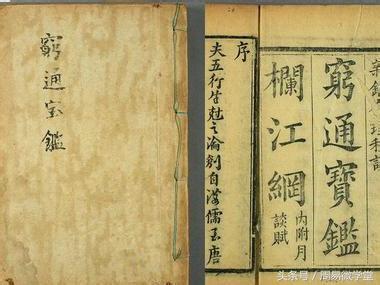 窮通寶鑑
欄江網
內附月
談賦
序
夫五行生尅之論創自漢儒至唐
窮通宝鑑
头条号 / 周易微学堂